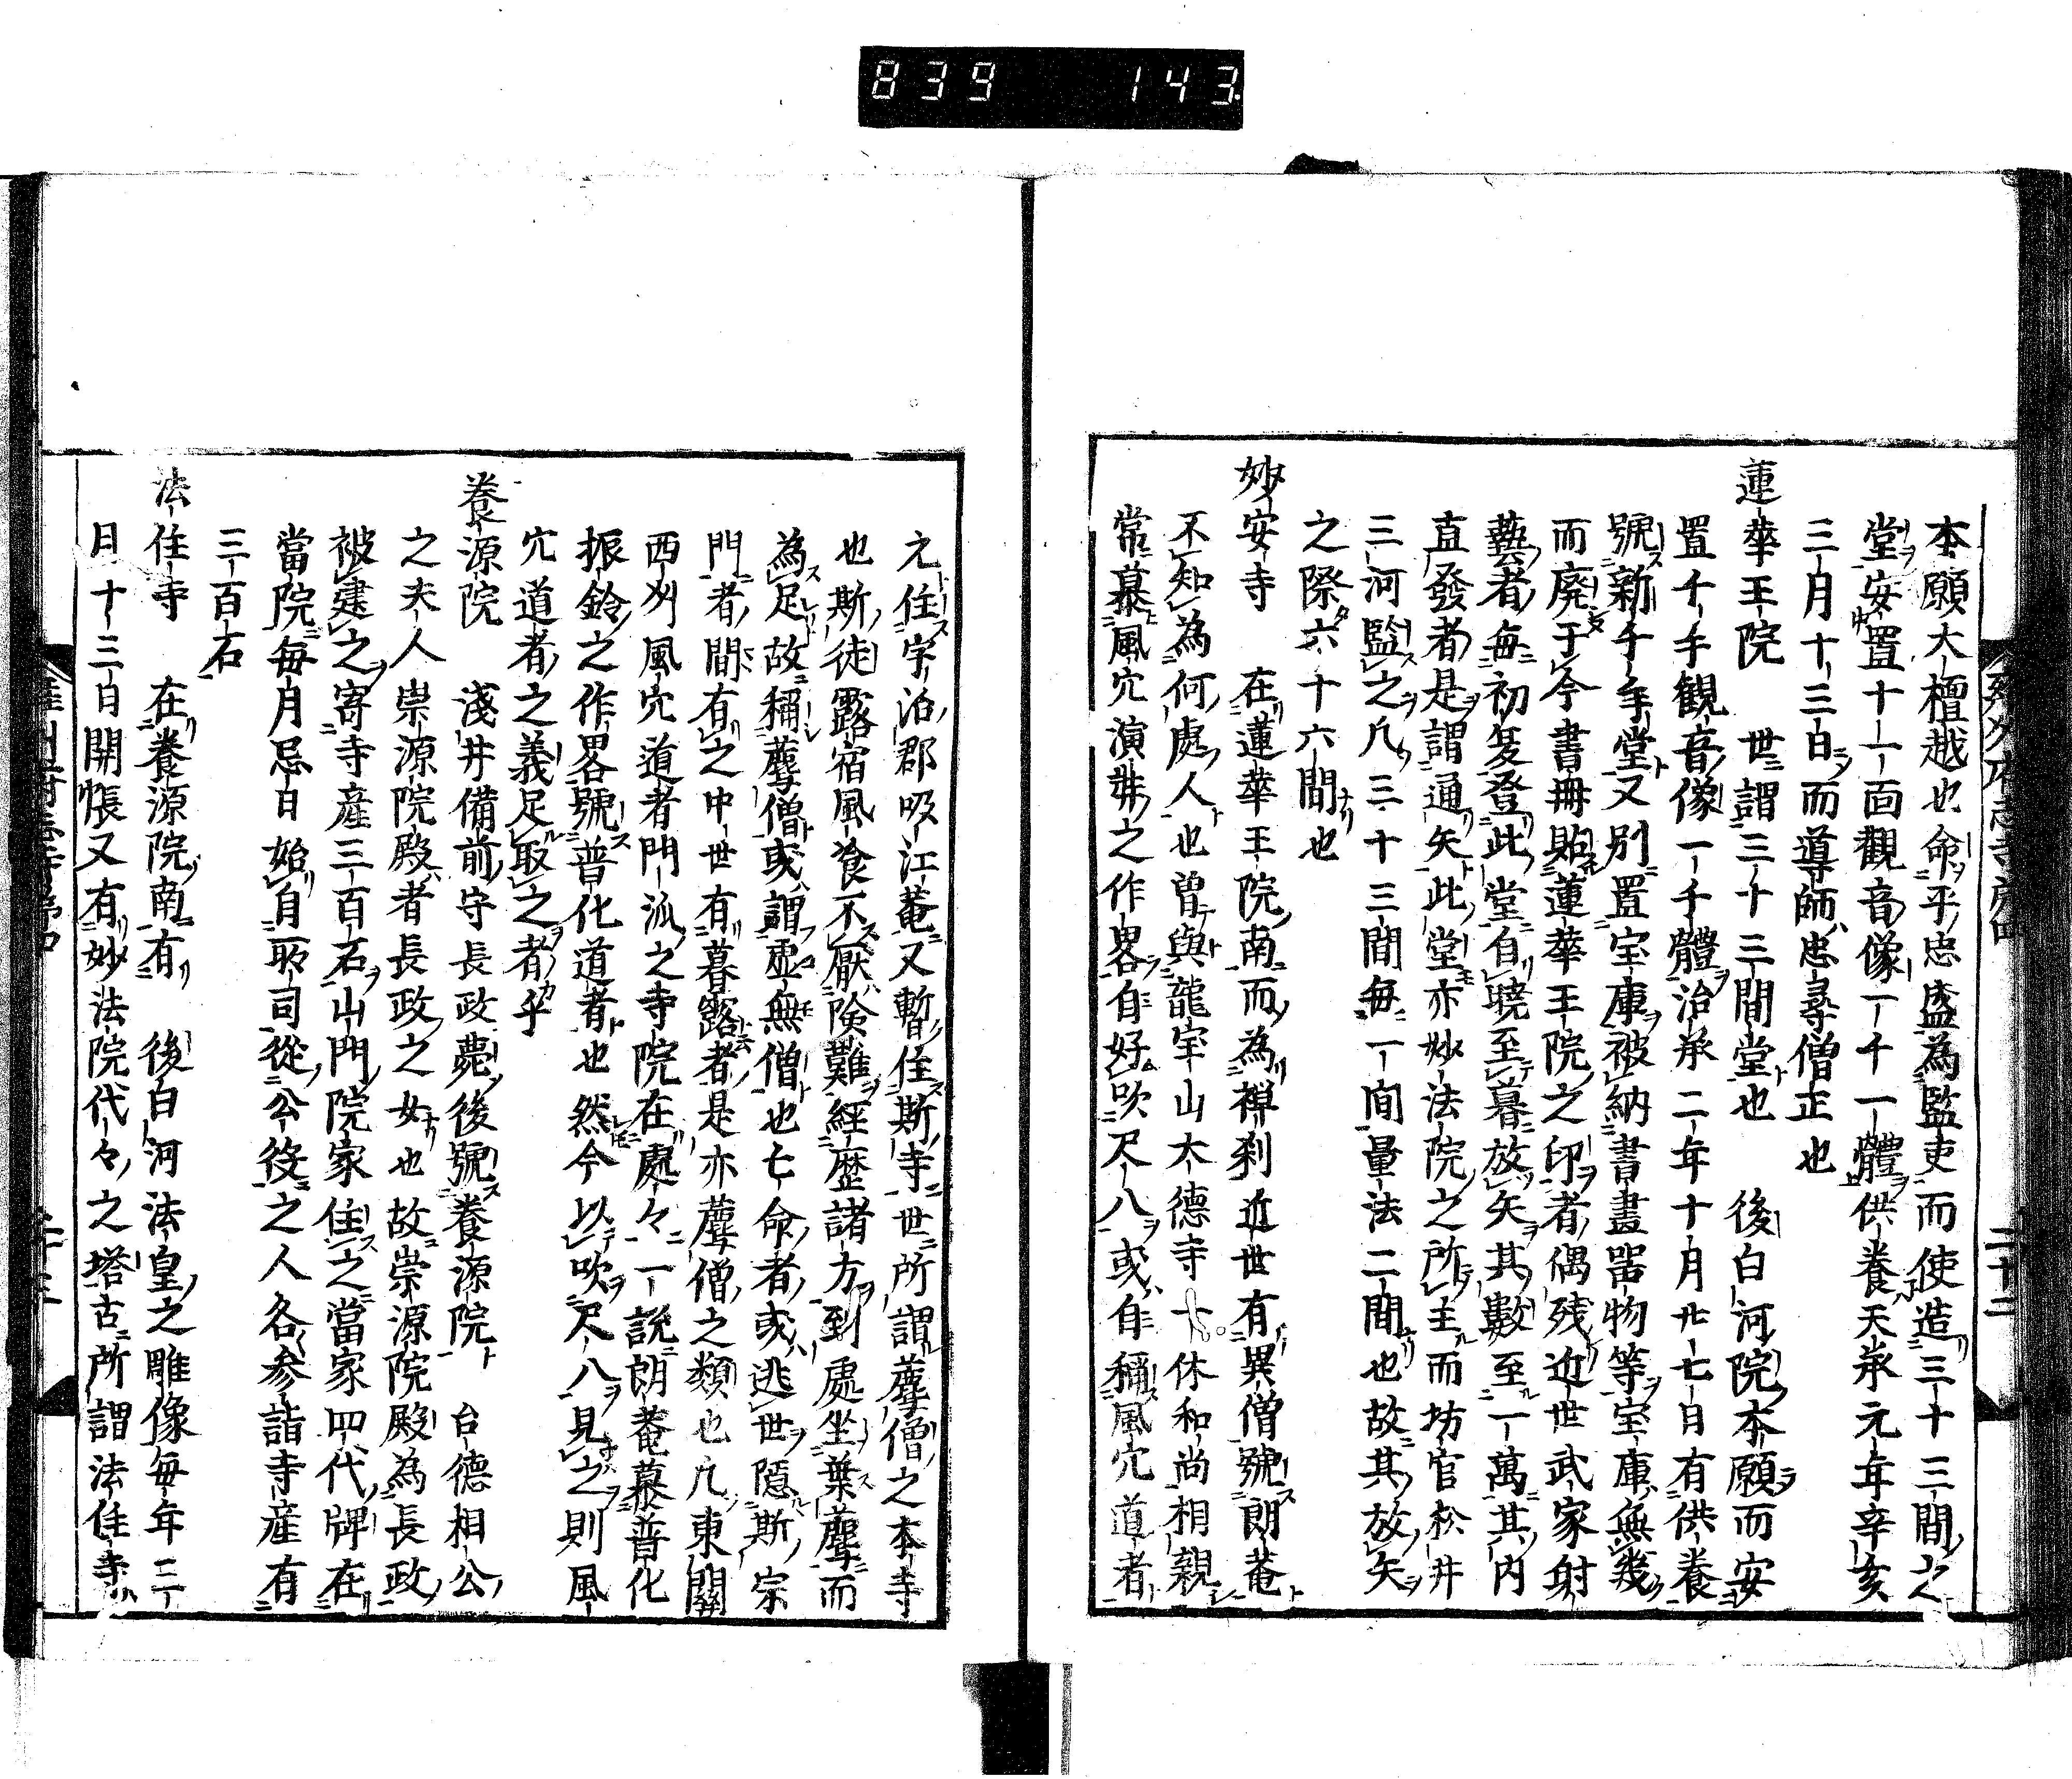 839 143
本願大檀越也命平忠盛為監吏而使造三十三間之
堂安置十一面觀音像一千一體供養天承元年辛亥
三月十三日而導師忠尋僧正也
蓮華王院 世謂三十三間堂也 後白河院本願而安
置千手観音像一千體治承二年十月廿七日有供養
號新千手堂又別置宝庫被納書畫噐物等宝庫無幾
而廃于今書冊貼蓮華王院之印者偶残近世武家射
藝者毎初夏登此堂自曉至暮放矢其數至一萬其内
直發者是謂通矢此堂亦妙法院之所主而坊官松井
三河監之凡三十三間毎一間量法二間也故其放矢
之際六十六間也
妙安寺 在蓮華王院南而為禅刹近世有異僧號朗菴
不知為何處人也曽與龍宝山大德寺一休和尚相親
常慕風穴演沼之作畧自好吹尺八或自稱風穴道者
元住宇治郡吸江菴又暫住斯寺世所謂薦僧之本寺
也斯徒露宿風飡不厭険難經歴諸方到處坐葉薦而
為足故稱薦僧或謂虚無僧也亡命者或逃世隠斯宗
門者間有之中世有暮露者是亦薦僧之類也凡東關
西州風穴道者門派之寺院在處々一說朗菴慕普化
振鈴之作畧號普化道者也然今以吹尺八見之則風
穴道者之義足取之者乎
養源院 淺井備前守長政薨後號養源院 台德相公
之夫人崇源院殿者長政之女也故崇源院殿為長政
被建之寄寺産三百石山門院家住之當家四代牌在
當院毎月忌日始自所司從公役之人各参詣寺産有
三百石
法住寺 在養源院南有 後白河法皇之雕像毎年三
月十三日開帳又有妙法院代々之塔古所謂法住寺